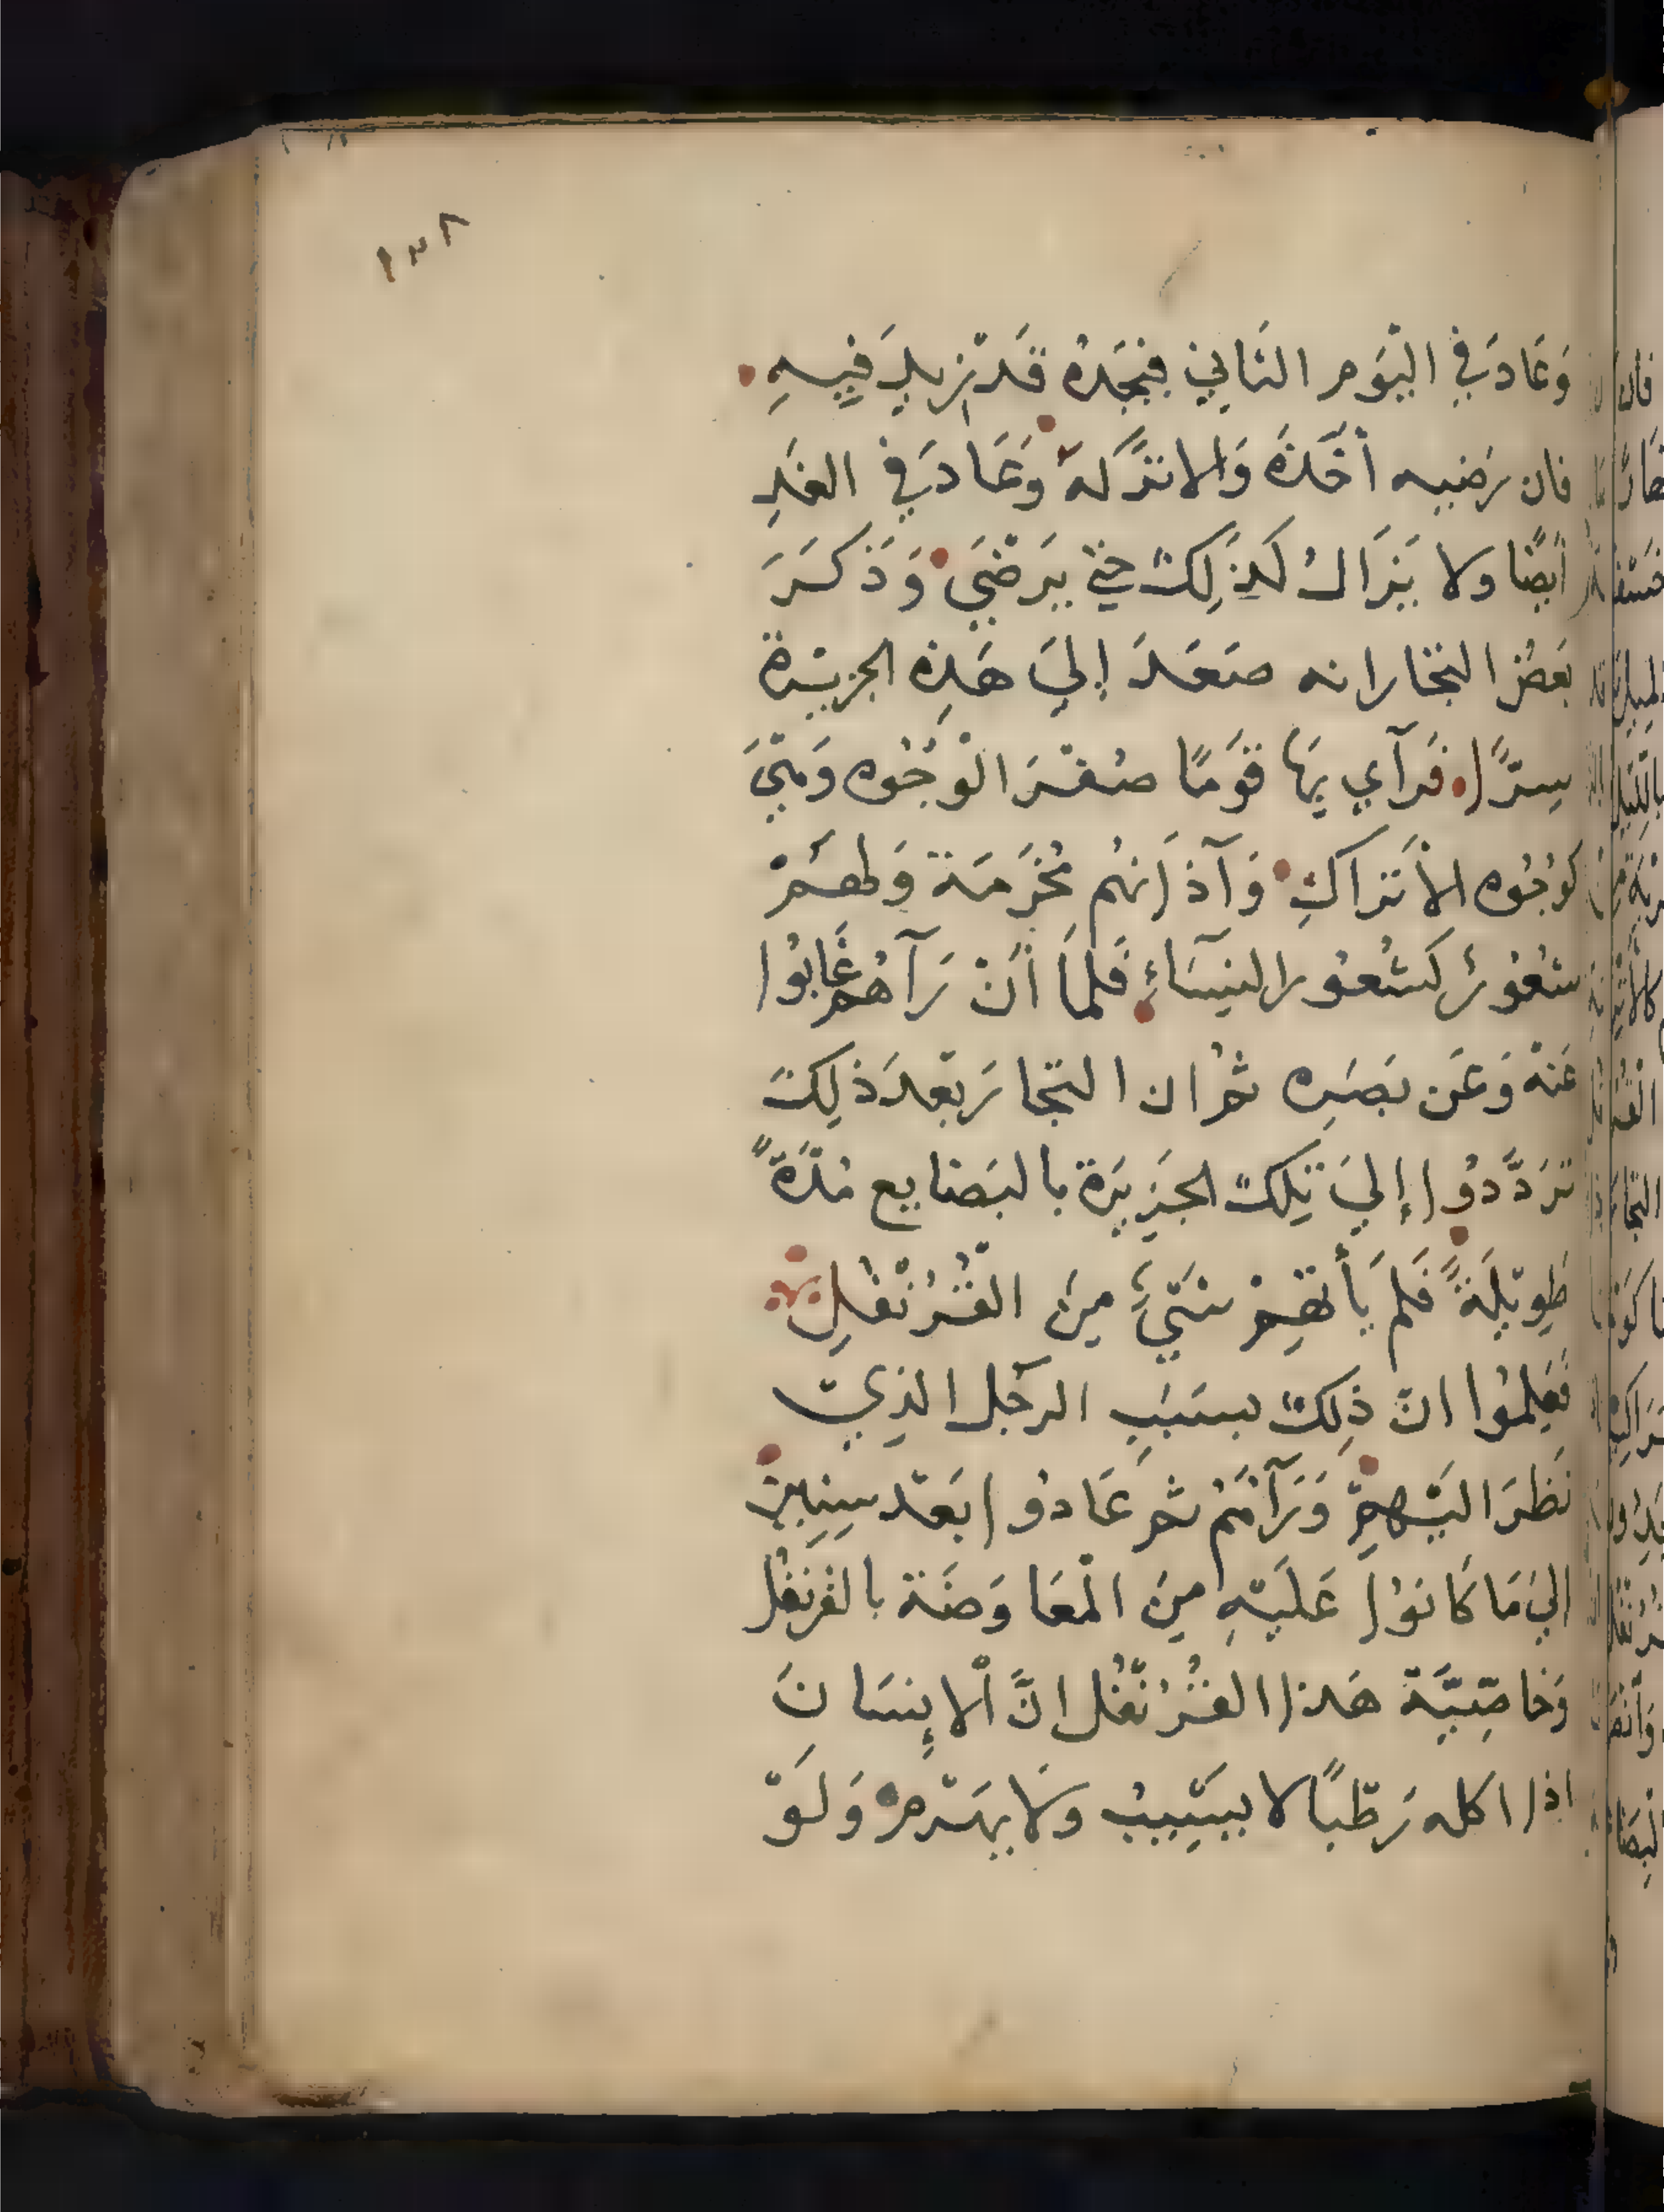 ١٣٨
وَعَادَ في اليَوم الثَاني فيَجَدهُ قَد زيدَ فِيهِ
فان رَضيه أخَذَهُ وَالا تَرَكَهُ وَعَادَ في الغَدِ
أيضًا ولا يَزَالُ كَذَلِكَ حتي يَرضَيَ وَذَكَرَ
بَعضُ التجار انه صَعَدَ إِليَ هَذِه الجزيرة
سِرًّا فَرَآي بِهَا قَومًا صُفرَ الوُجُوه وَهيَ
كوُجُوه الأتراكِ وَآذَانهُم مُخَرَمَة وَلهمُ
شعُورٌ كشُعُور النِسَاءِ فَلمَا أَن رَآهُم غَابُوا
عَنهُ وَعَن بَصَرِه ثمُ ان التجارَ بَعدَ ذلِكَ
تَرَدَّدُوا إِليَ تِلكَ الجَزِيرَة بالبَضايع مُدَّةً
طَوِيلَةً فَلم يَأتهِم شَيءٌ مِنَ القُرُنفُلِ
فَعَلِمُوا انّ ذلِكَ بسَبَبِ الرجُل الذِي
نَظرَ اليَهِمِ وَرَآهُم ثم عَادُوا بَعَد سِنِين
اليَ مَا كَانوُا عَلَيهِ مِنَ المعَاوَضَة بالقرنفُل
وَخاصِّيَّة هَذا القُرُنفُل انَّ الإنسَانَ
اذا اكله رَطبًا لا يَشِيبُ وَلا يهَرم وَلَوْ